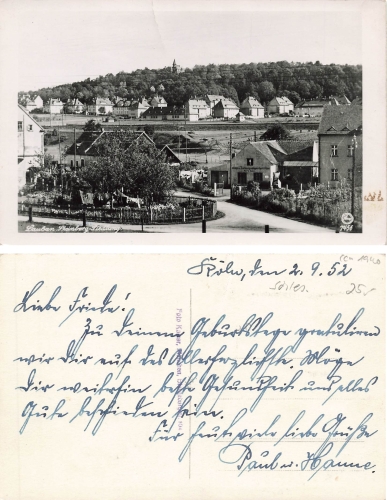 Lauban, Steinberg-Siedlung
Köln, den 2.9.52
Liebe Friede!
Zu Deinem Geburtstage gratulieren
wir Dir auf das Allerherzlichste. Möge
Dir weiterhin beste Gesundheit und alles
Gute beschieden sein.
Für heute viele liebe Grüße
Paul u. Hanne.